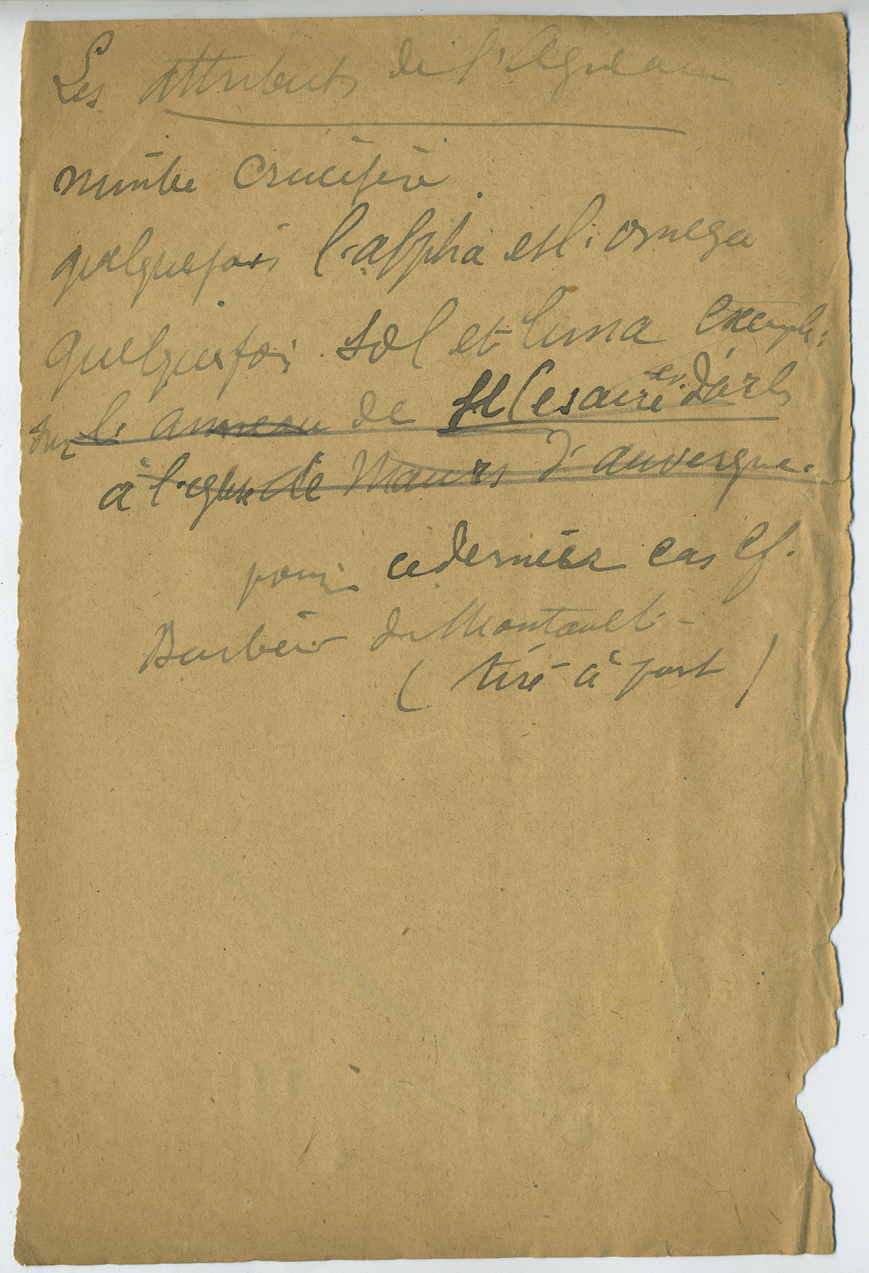 Les attributs de l'Agneau
nimbe crucifère
quelquefois l'alpha et l'omega
quelquefois sol et luna exemple:
sur l'anneau de St Cesaire ev. d'Arles
à l'eglise de Maurs d'auvergne.
pour ce dernier cas Cf.
Barbier de Montault -
(tiré à part)